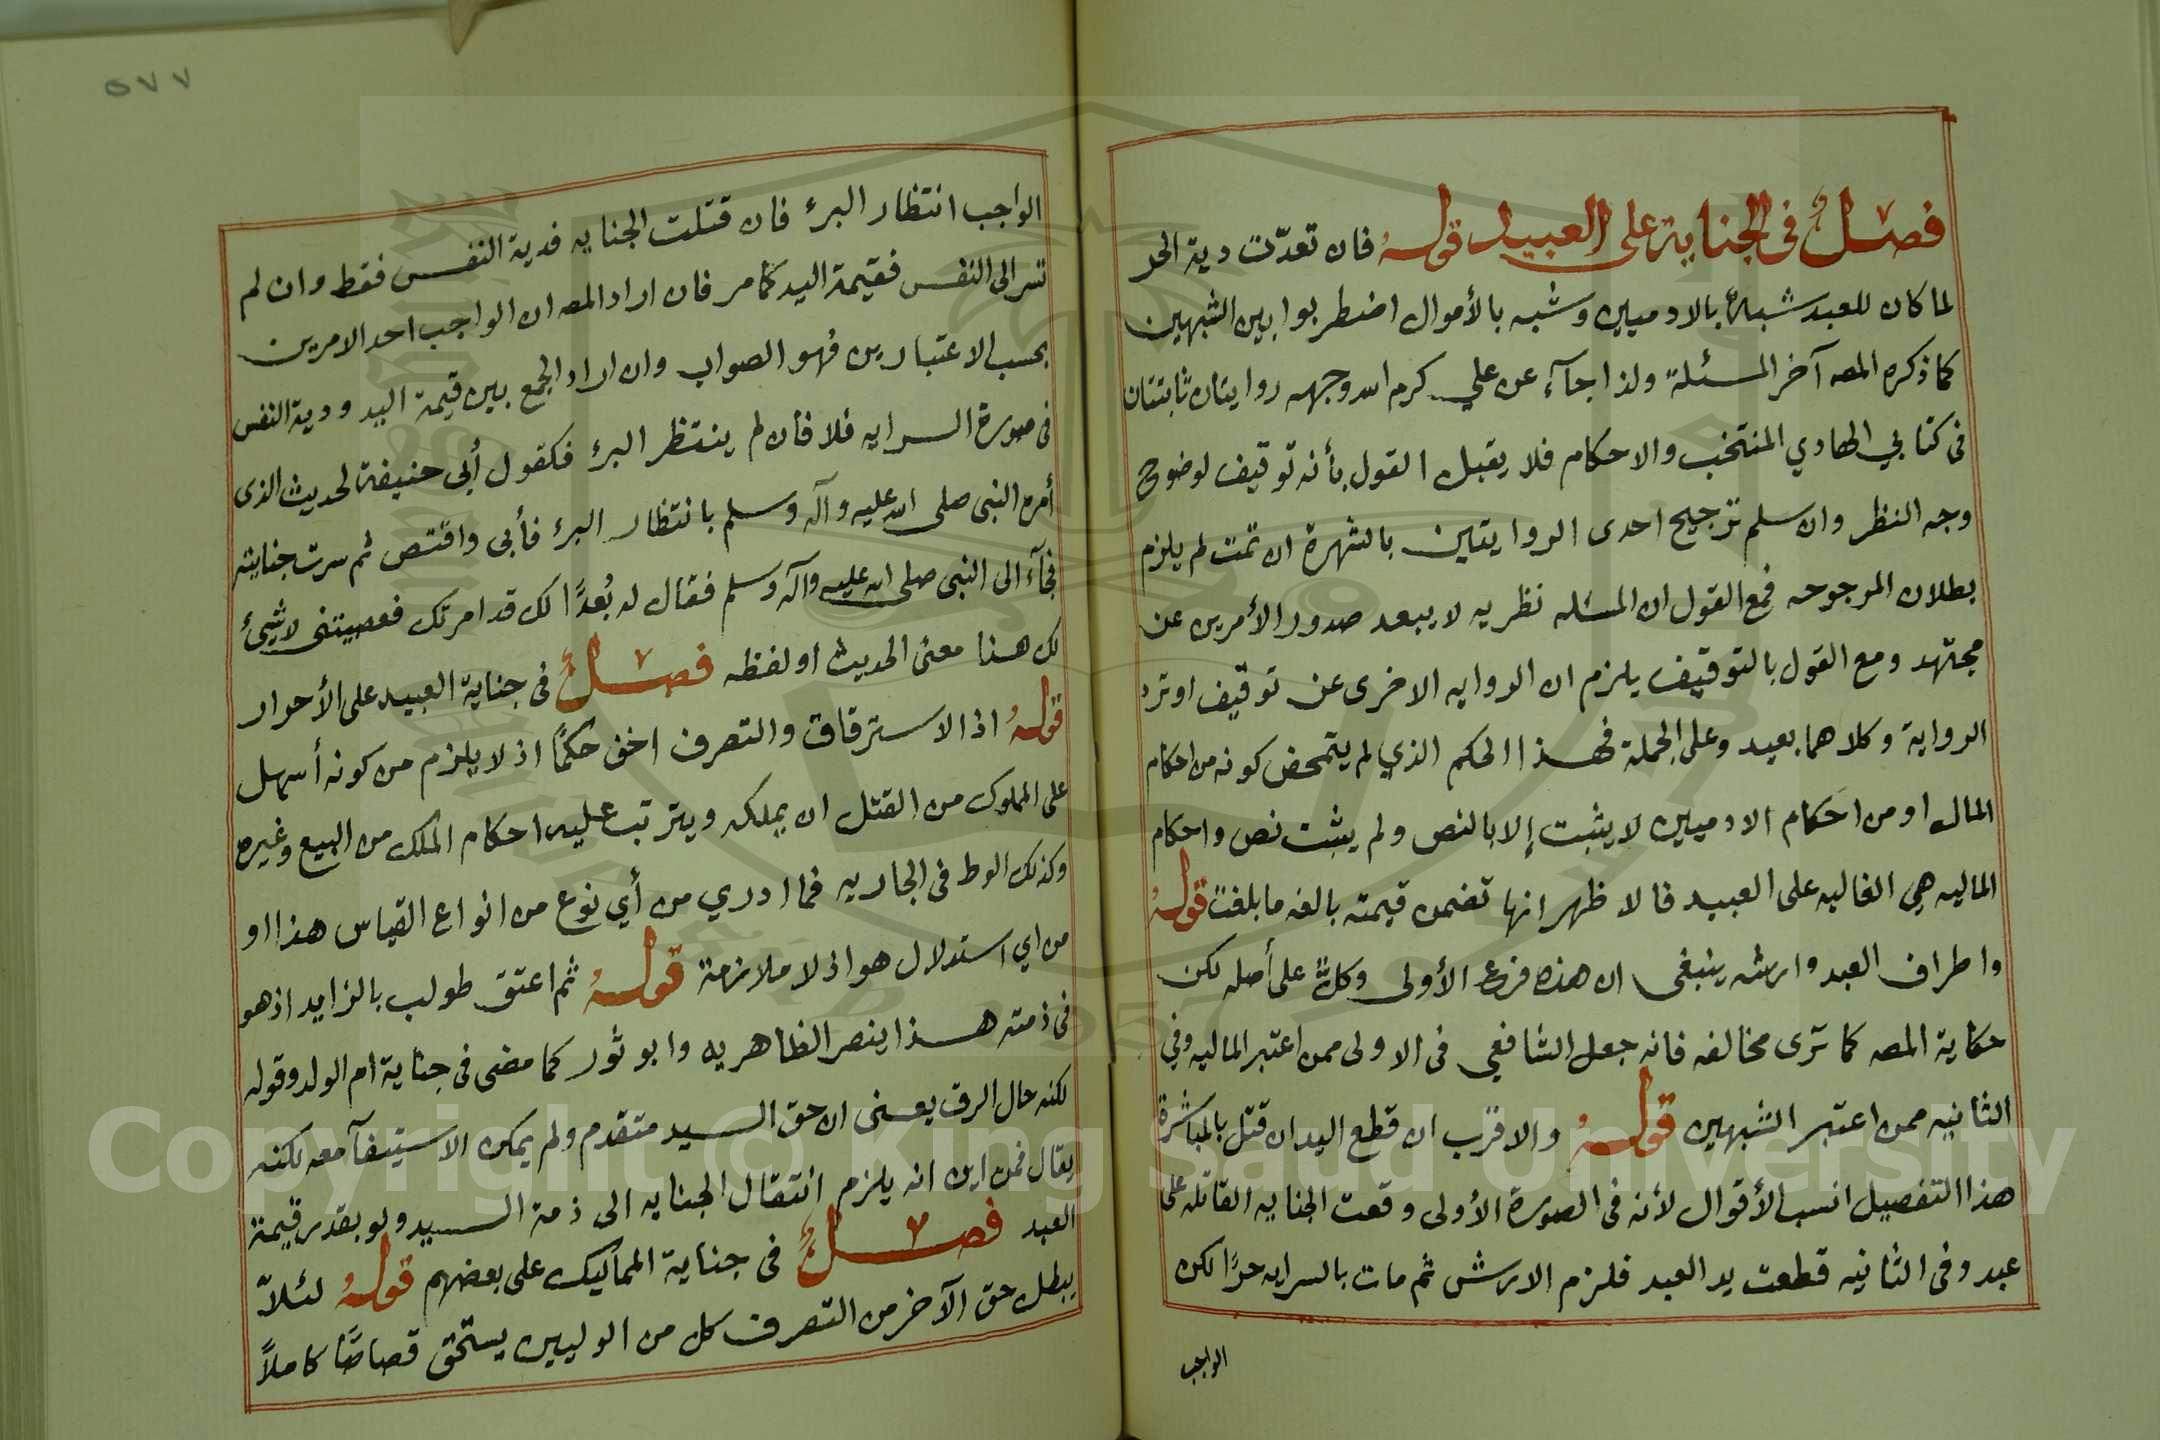 فصل في الجناية على العبيد قوله فان تعدّت دية الحر
لما كان للعبد شبهٌ بالادميين وشبه بالأموال اضطربوا بين الشبهين
كما ذكره المصه آخر المسئلة ولذا جآء عن علي كرم الله وجهه روايتان ثابتتان
في كتابي الهادي المنتخب والاحكام فلا يقبل القول بأنه توقيف لوضوح
وجه النظر وان سلم ترجيح احدى الروايتين بالشهرة ان تمت لم يلزم
بطلان المرجوحه فمع القول ان المسئله نظريه لا يبعد صدور الأمرين عن
مجتهد ومع القول بالتوقيف يلزم ان الروايه الاخرى عن توقيف او ترد
الرواية وكلاهما بعيد وعلى الجملة فهذا الحكم الذي لم يتمحض كونه من احكام
المال او من احكام الادميين لا يثبت إلا بالنص ولم يثبت نص واحكام
الماليه هي الغالبه على العبيد فالاظهر انها تضمن قيمته بالغه ما بلغت قوله
واطراف العبد وارشه ينبغي ان هذه فرع الأولى وكلٌ على أصله لكن
حكاية المصه كما ترى مخالفه فانه جعل الشافعي في الاولى ممن اعتبر الماليه وفي
الثانيه ممن اعتبر الشبهين قوله والاقرب ان قطع اليد ان قتل بالمباشرة
هذا التفصيل انسب الأقوال لأنه في الصورة الأولى وقعت الجنايه القاتله على
عبد وفي الثانيه قطعت يد العبد فلزم الارش ثم مات بالسرايه حرًا لكن
الواجب
٥٧٧
الواجب انتظار البرء فان قتلت الجنايه فدية النفس فقط وان لم
تسر الى النفس فقيمة اليد كما مر فان اراد المصه ان الواجب احد الامرين
بحسب الاعتبارين فهو الصواب وان اراد الجمع بين قيمة اليد ودية النفس
في صورة السرايه فلا فان لم ينتظر البرء فكقول أبي حنيفة لحديث الذى
أمره النبى صلى الله عليه وآله وسلم بانتظار البرء فأبى واقتص ثم سرت جنايته
فجآء الى النبى صلى الله عليه وآله وسلم فقال له بُعدًا لك قد امرتك فعصيتنى لا شيئ
لك هذا معنى الحديث او لفظه فصل في جناية العبيد على الأحرار
قوله اذ الاسترقاق والتصرف اخف حكمًا اذ لا يلزم من كونه أسهل
على المملوك من القتل ان يملكه ويترتب عليه احكام الملك من البيع وغيره
وكذلك الوط في الجاريه فما ادري من أي نوع من انواع القياس هذا او
من اي استدلال هو اذ لا ملازمة قوله ثم اعتق طولب بالزايد اذ هو
في ذمته هذا ينصر الظاهريه وابو ثور كما مضى في جناية ام الولد وقوله
لكنه حال الرق يعنى ان حق السيد متقدم ولم يمكن الاستيفآ معه لكنه
يقال فمن اين انه يلزم انتقال الجنايه الى ذمة السيد ولو بقدر قيمة
العبد فصل في جناية المماليك على بعضهم قوله لئلاّ
يبطل حق الآخر من التصرف كل من الوليين يستحق قصاصًا كاملاً
Copyright © King Saud University
1957